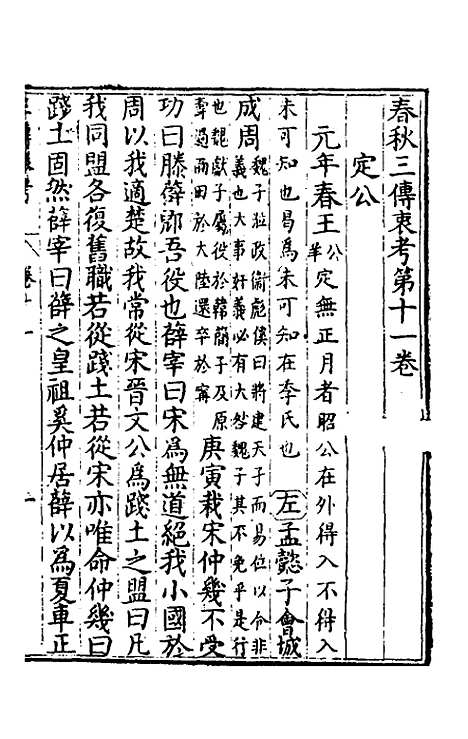 春秋三傳衷考第十一卷
定公
元年春王公羊定無正月者昭公在外得入不得入
未可知也曷為未可知在季氏也左孟懿子會城
成周魏子涖政衞彪傒曰將建天子而易位以令非
義也大事奸義必有大咎魏子其不免乎是行
也魏獻子屬役於韓簡子及原
壽過而田於大陸還卒於甯庚寅栽宋仲幾不受
功曰滕薛郳吾役也薛宰曰宋為無道絕我小國於
周以我適楚故我常從宋晉文公為踐土之盟曰凡
我同盟各復舊職若從踐土若從宋亦唯命仲幾曰
踐土固然薛宰曰薛之皇祖奚仲居薛以為夏車正